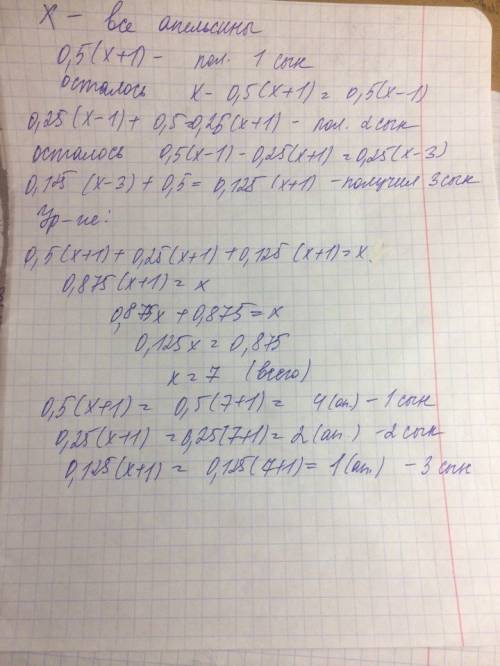 X – все апельсины
0,5(x+1) – пол. 1 сын
осталось x - 0,5(x+1) = 0,5(x-1)
0,25(x-1) + 0,5 = 0,25(x+1) – пол. 2 сын
осталось 0,5(x-1) - 0,25(x+1) = 0,25(x-3)
0,125 (x-3) + 0,5 = 0,125(x+1) – получил 3 сын
Ур-ие:
0,5(x+1) + 0,25(x+1) + 0,125(x+1) = x
0,875(x+1) = x
0,875x + 0,875 = x
0,125x = 0,875
x = 7 (всего)
0,5(x+1) = 0,5(7+1) = 4(ап.) – 1 сын
0,25(x+1) = 0,25(7+1) = 2(ап.) – 2 сын
0,125(x+1) = 0,125(7+1) = 1(ап.) – 3 сын